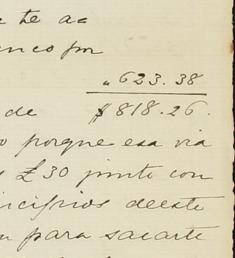 te ac
anco por
" 623.38
de $818.26.
porque esa via
£30 junto con
de este
para sacarte